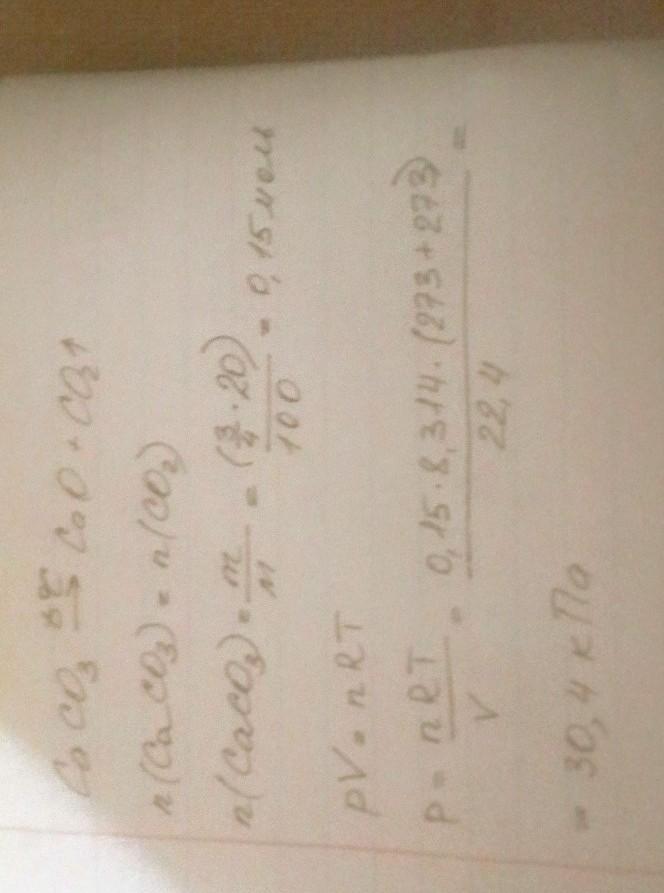 CaCO₃ =(Δt)= CaO + CO₂↑
n(CaCO₃) = n(CO₂)
n(CaCO₃) = m/M = (3/4 · 20)/100 = 0,15 моль
PV = nRT
P = nRT/V = 0,15 · 8,314 · (273 + 273)/22,4 =
= 30,4 кПа